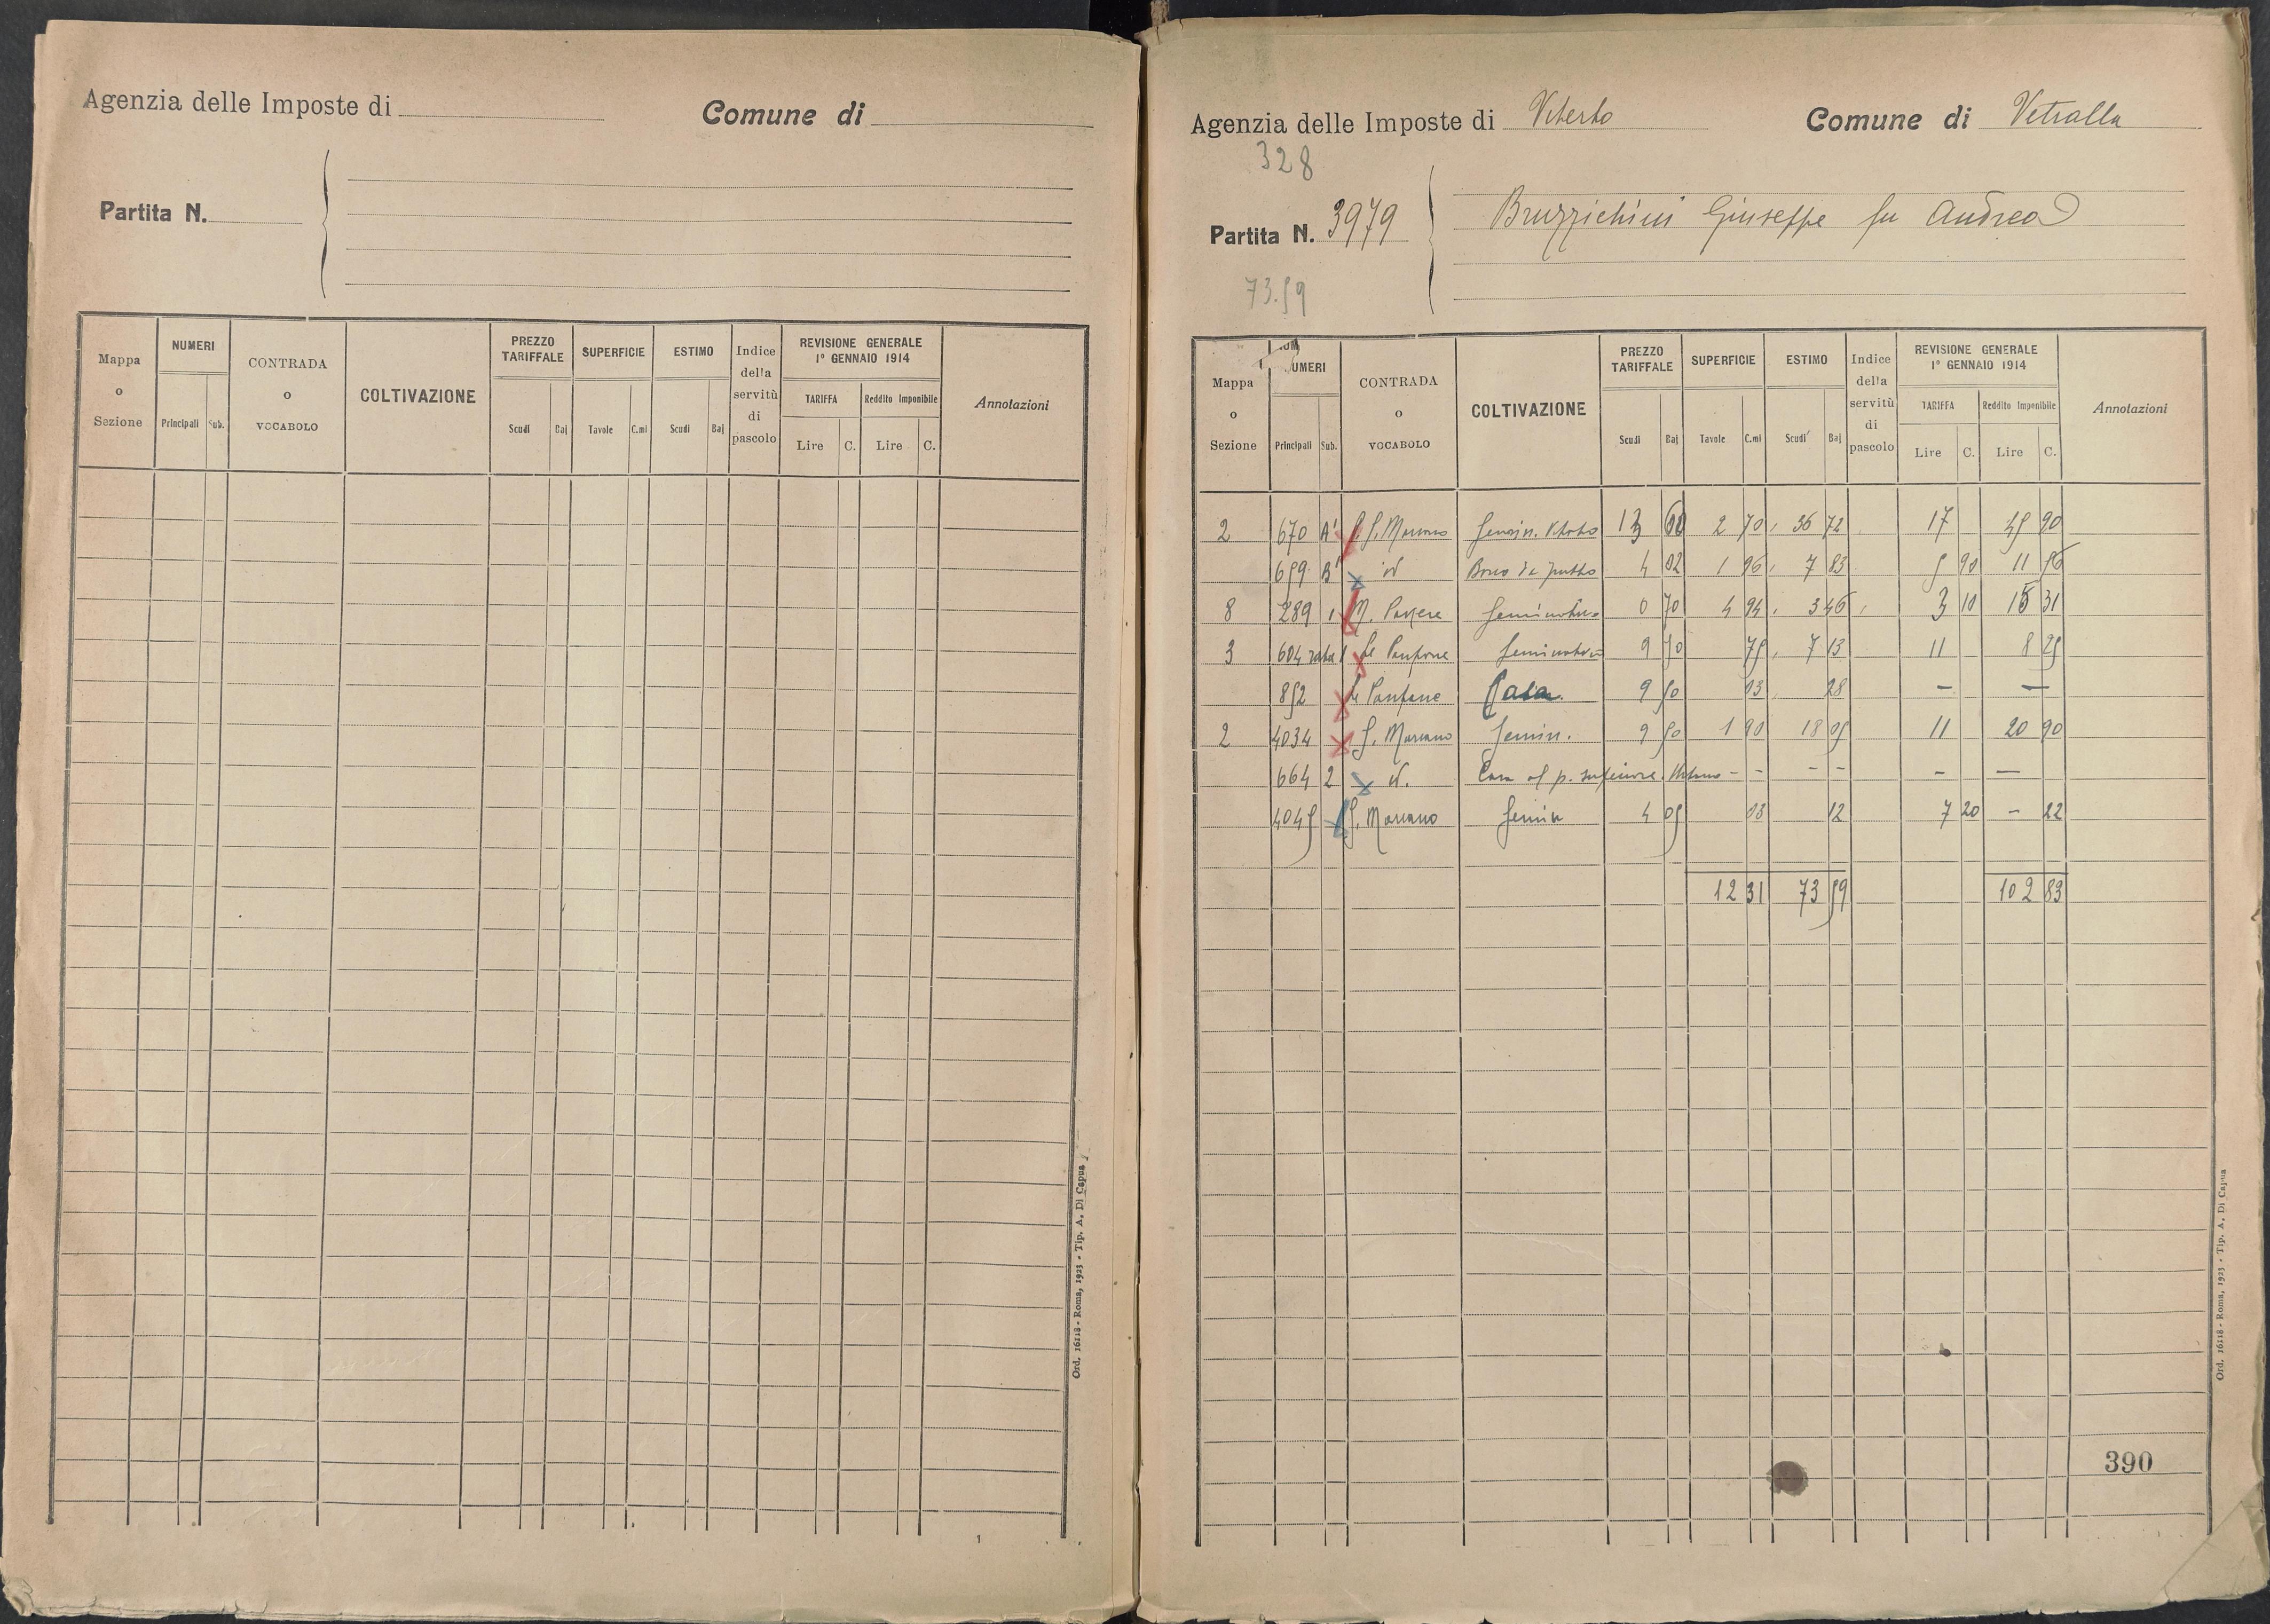 Agenzia delle Imposte di
Comune di
Partita N.
Mappa o Sezione
NUMERI
Principali Sub.
CONTRADA o VOCABOLO
COLTIVAZIONE
PREZZO TARIFFALE
Scudi Baj
SUPERFICIE
Tavole C.mi
ESTIMO
Scudi Baj
Indice della servitù di pascolo
REVISIONE GENERALE
1° GENNAIO 1914
TARIFFA Reddito Imponibile
Lire C. Lire C.
Annotazioni
Ord. 16118 - Roma, 1923 - Tip. A. Di Capua
1
Agenzia delle Imposte di Viterbo Comune di Vetralla
328
Partita N. 3979 Bruzzichini Giuseppe fu Andrea
73.59
Mappa o Sezione
NUMERI
Principali Sub.
CONTRADA o VOCABOLO
COLTIVAZIONE
PREZZO TARIFFALE
Scudi Baj
SUPERFICIE
Tavole C.mi
ESTIMO
Scudi Baj
Indice della servitù di pascolo
REVISIONE GENERALE
1° GENNAIO 1914
TARIFFA Reddito Imponibile
Lire C. Lire C.
Annotazioni
2 670 A' S. Marano Semin. Vitato 13 60 2 70 36 72 17 45 90
659 B' id Bosco da frutto 4 02 1 96 7 83 5 90 11 56
8 289 1 M. Panese Seminativo 0 70 4 94 3 46 3 10 15 31
3 604 rata 1 Le Pantane Seminativo 9 50 75 7 13 11 8 25
852 Le Pantane Casa 9 50 03 28 — —
2 4034 S. Marano Semin. 9 50 1 90 18 05 11 20 90
664 2 id. Casa al p. superiore - - - - - —
4045 S. Marano Semin 4 05 03 12 7 20 - 22
12 31 73 59 102 83
390
Ord. 16118 - Roma, 1923 - Tip. A. Di Capua